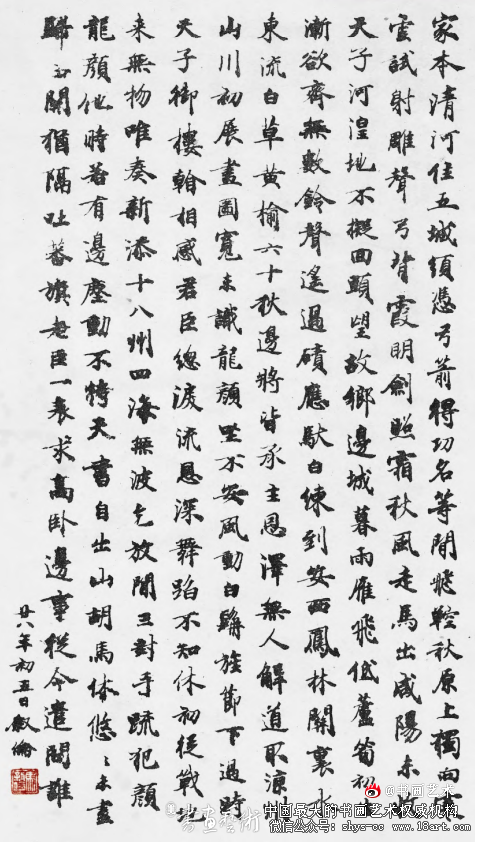 家本清河住五城須憑弓箭得功名等閒飛鞚秋原上獨向寒
雲試射雕聲弓背霞明劍照霜秋風走馬出咸陽未收
天子河湟地不擬回頭望故鄉邊城暮雨雁飛低蘆筍初生
漸欲齊無數鈴聲遙過磧應馱白練到安西鳳林關裏水
東流白草黃榆六十秋邊將皆承主恩澤無人解道取涼州
山川初展畫圖寬未識龍顏坐不安風動白髯旌節下過時
天子御樓相感君臣總淚流恩深舞蹈不知休初從戰
来無物唯奏新添十八州四海無波乞放閒三對手疏犯顏
龍顏他時若有邊塵動不待天書自出山胡馬休悠〻未盡
歸玉關猶隔吐蕃旗老臣一表求高卧邊事從今遣問誰
廿八年初五日敘倫
书画艺术
@书画艺术
中国最大的书画艺术权威机构
微信公众号：shys-cc www.18art.com